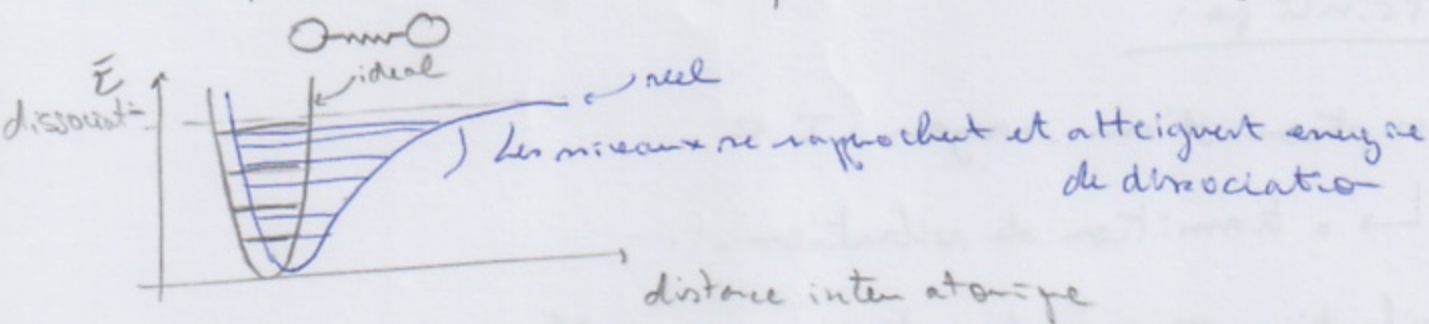 E
ideal
réel
dissociat°
Les niveaux se rapprochent et atteignent energie
de dissociation
distance inter atomique